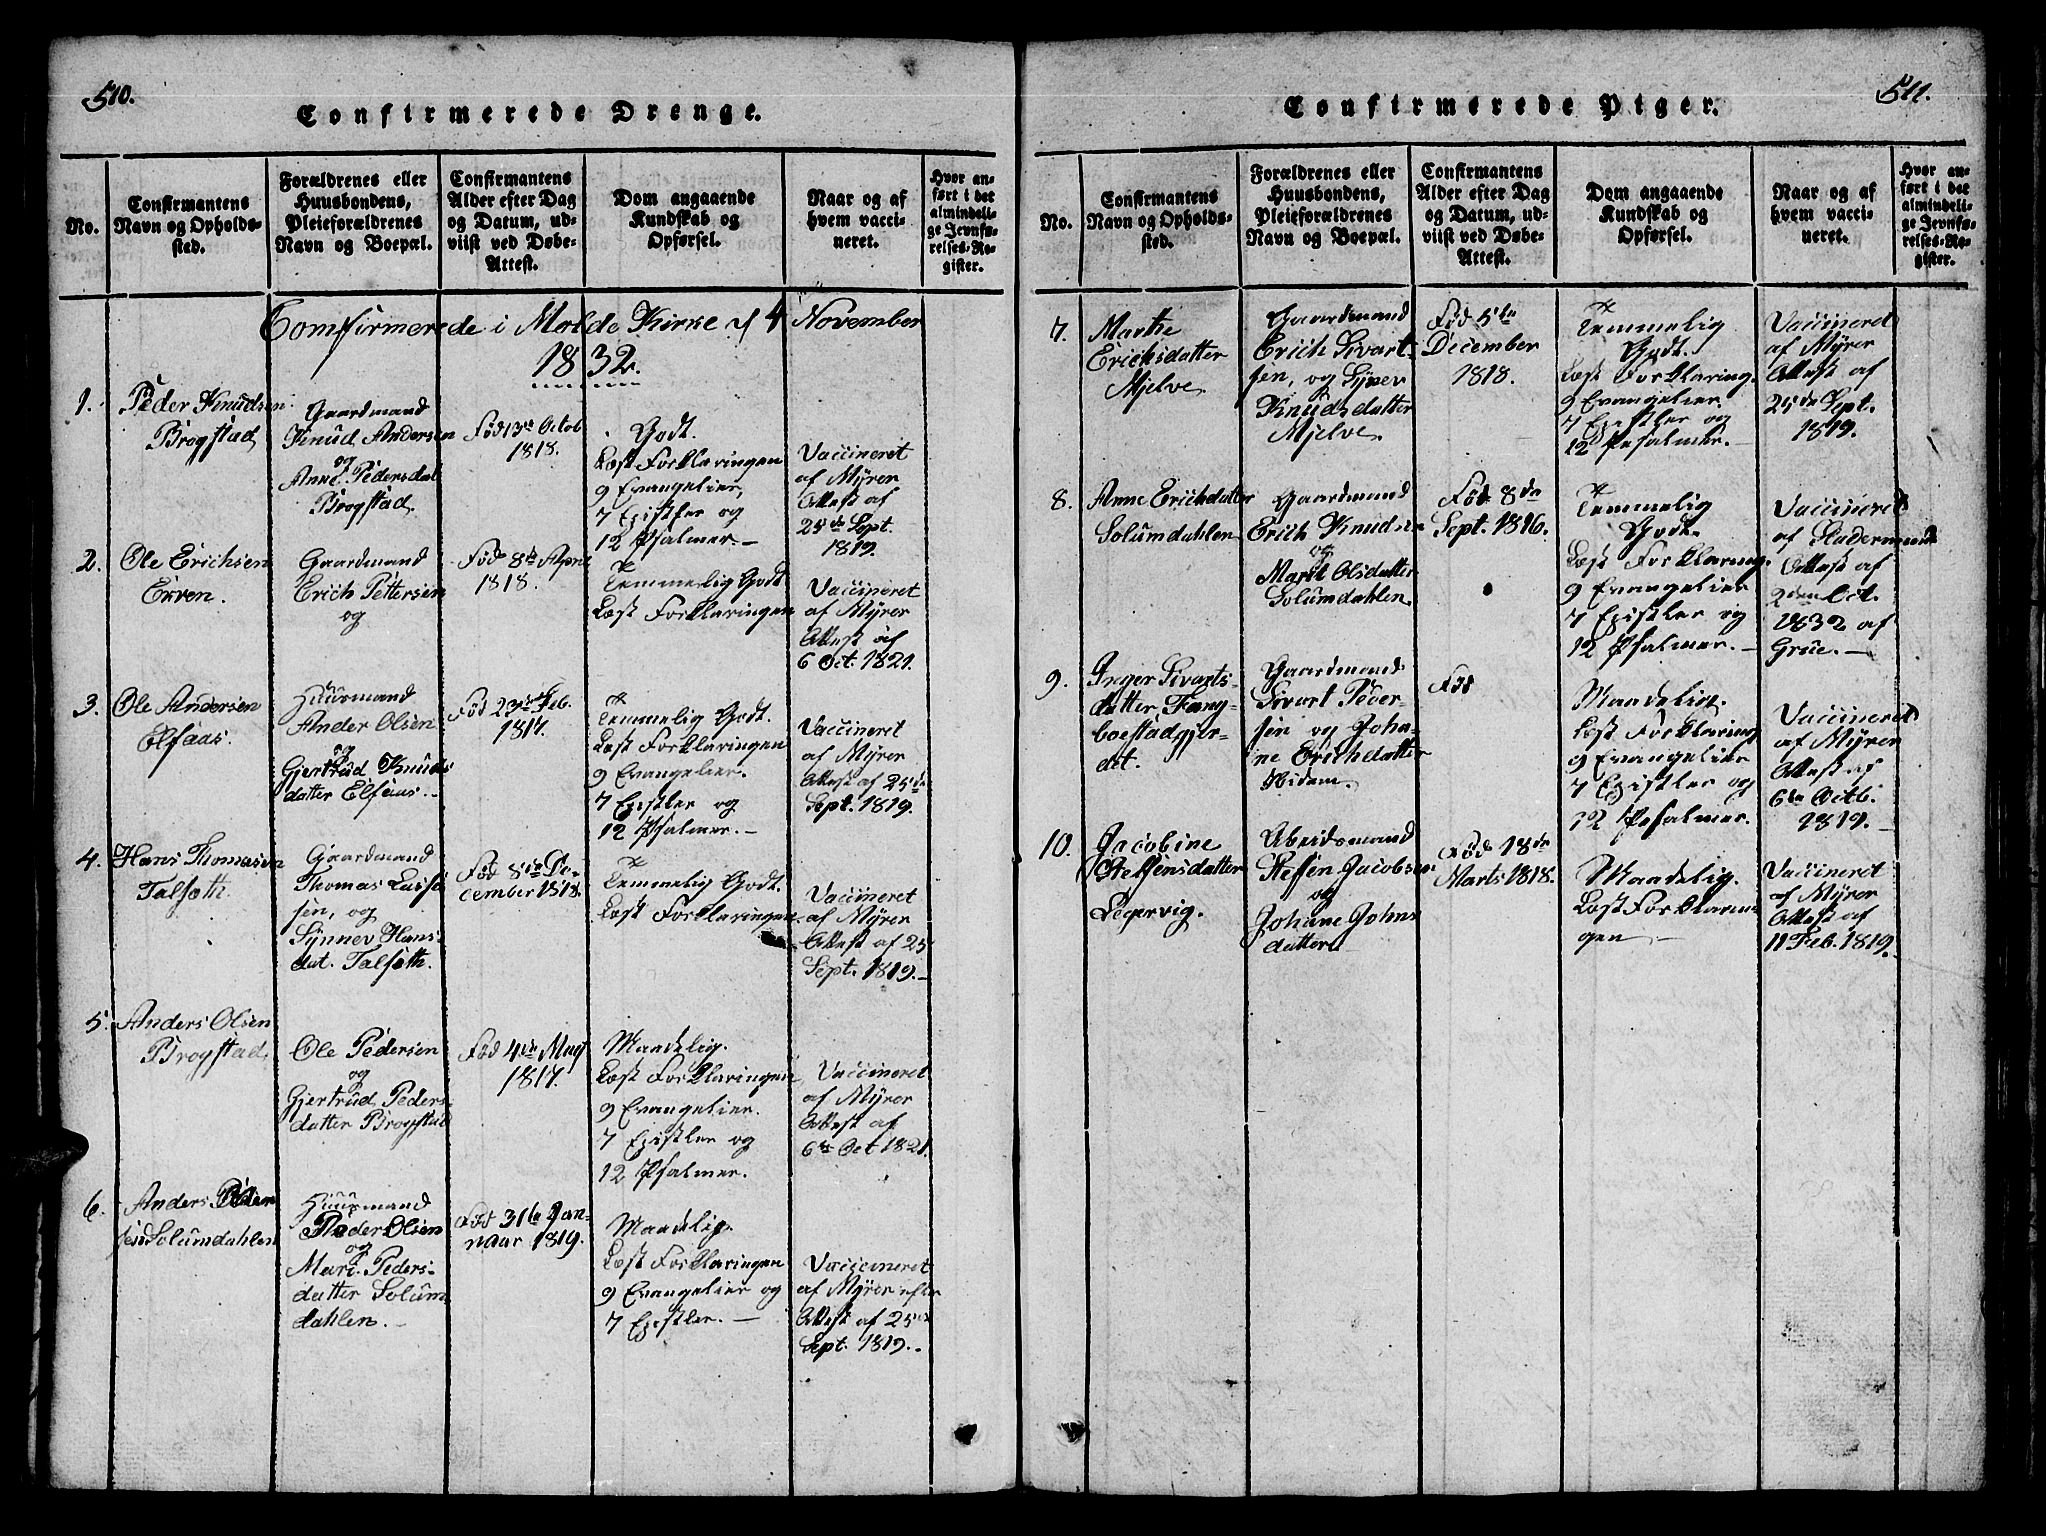 510.
Confirmerede Drenge.
No.
Confirmantens
Navn og Opholds-
sted.
Forældrenes eller
Huusbondens,
Pleieforældrenes
Navn og Boepæl.
Confirmantens
Alder efter Dag
og Datum, ud-
viist ved Døbe-
Attest.
Dom angaaende
Kundskab og
Opførsel.
Naar og af
hvem vacci-
neret.
Hvor an-
ført i det
almindeli-
ge Jevnfø-
relses-Re-
gister.
Comfirmerede i Molde Kirke d 4 November
1832.
1.
Peder Knudsen
Brogstad
Gaardmand
Knud Andersen
og
Anne Pedersdat
Brogstad.
Fød 13de Octob
1818.
Godt.
Læst Forklaringen
9 Evangelier,
7 Epistler og
12 Psalmer.-
Vaccineret
af Myrer
Attest af
25de Sept.
1819.
2.
Ole Erichsen
Erven.
Gaardmand
Erich Pettersen
og
Fød 8de April
1818.
Temmelig Godt
Læst Forklaringen
Vaccineret
af Myrer
Attest af
6 Oct. 1821.
3.
Ole Andersen
Elfaas.
Huusmand
Ander Olsen
og
Gjertrud Knuds
datter Elfaas.-
Fød 23de Feb.
1817.
Temmelig Godt.
Læst Forklaringen
9 Evangelier.
7 Epistler og
12 Psalmer.-
Vaccineret
af Myrer
Attest af 25de
Sept. 1819.
4.
Hans Thomasen
Talsæth.
Gaardmand
Thomas Lasse
sen, og
Synnev Hans-
dat. Talsæth.
Fød 8de De-
cember 1818.
Temmelig Godt.
Læst Forklaringen
Vaccineret
af Myrer
Attest af 25
Sept. 1819.-
5.
Anders Olsen
Brogstad,
Ole Pedersen
og
Gjertrud Peders-
datter Brogstad
Fød 4de May
1817.
Maadelig.
Læst Forklaringen
9 Evangelier.
7 Epistler og
12 Psalmer.
Vaccineret
af Myrer
Attest af
6te Oct 1821.
6.
Anders Peder
sen Solumdahlen
Huusmand
Peder Olsen
og
Mari Peders-
datter Solum
dahlen.-
Fød 31te Jan-
naar 1819.
Maadelig.
Læst Forklaringen
9 Evangelier og
7 Epistler.-
Vaccineret
af Myrer efter
Attest af 25de
Sept. 1819.
511.
Confirmerede Piger.
No.
Confirmantens
Navn og Opholds-
sted.
Forældrenes eller
Huusbondens,
Pleieforældrenes
Navn og Boepæl.
Confirmantens
Alder efter Dag
og Datum, ud-
viist ved Døbe-
Attest.
Dom angaaende
Kundskab og
Opførsel.
Naar og af
hvem vacci-
neret.
Hvor an-
ført i det
almindeli-
ge Jevnfø-
relses-Re-
gister.
7.
Marthe
Erichsdatter
Mjelve
Gaardmand
Erich Sivart-
sen, og Syner
Knudsdatter
Mjelve.
Fød 5te
December
1818.
Temmelig
Godt.
Læst Forklaring.
9 Evangelier
7 Epistler og
12 Psalmer.-
Vaccineret
af Myrer
Attest af
25de Sept.
1819.
8.
Anne Erichdatter
Solumdahlen
Gaardmand
Erich Knudsen
og
Marit Olsdatter
Solumdahlen.
Fød 8de
Sept. 1816.
Temmelig
Godt.
Læst Forklaring.
9 Evangelier
7 Epistler og
12 Psalmer.-
Vaccineret
af
Attest af
2den Oct.
1832 af
Grue.-
9.
Inger Sivarts-
datter Fang-
boestadgjer-
det.
Gaardmand
Sivart Peder-
sen og Joha-
ne Erichdatter
Ibidem.
Fød
Maadelig.
Læst Forklaring
9 Evangelier
7 Epistler og
12 Psalmer.
Vaccineret
af Myrer
Attest af
6te Octb.
1819.-
10.
Jacobine
Steffensdatter
Legervig.
Abeidsmand
Steffen Jacobsen
og
Johane Johns
datter
Fød 18de
Marts 1818.
Maadelig.
Læst Forklarin-
gen -
Vaccineret
af Myrer
Attest af
11 Feb. 1819.